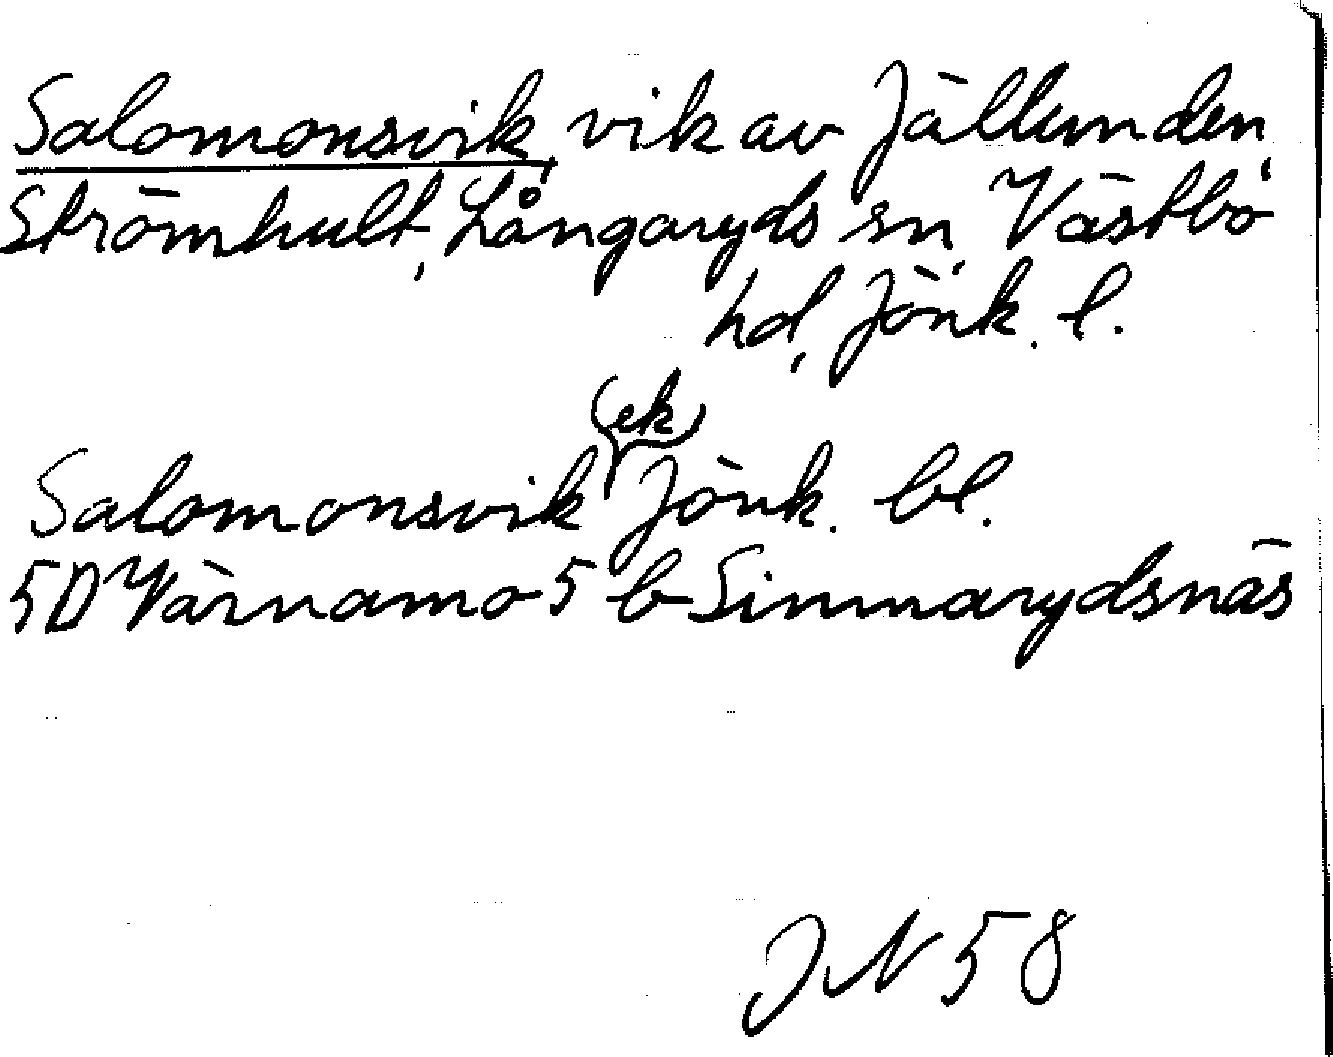 Salomonsvik, vik av Jällunden,
Strömhult, Långaryds sn, Västbo
hd, Jönk. l.
Salomonsvik (ek) Jönk. bl.
5D Värnamo 5 b Sinnarydsnäs
JN 58